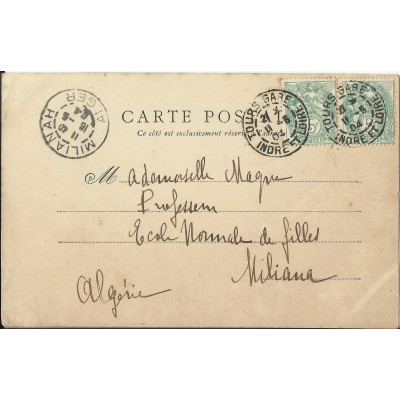 CARTE POS
Ce côté est exclusivement réservé
TOURS GARE
INDRE ET LOIRE
TOURS GARE
INDRE ET LOIRE
MILIANAH
ALGER
Mademoiselle Magne
Professeur
Ecole Normale de filles
Miliana
Algérie